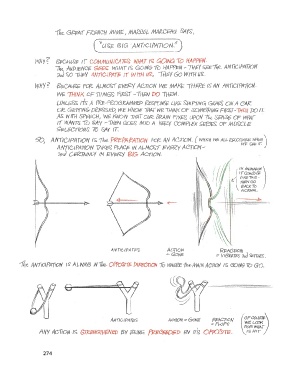 THE GREAT FRENCH MIME, MARCEL MARCEAU SAYS,
"USE BIG ANTICIPATION."
WHY? BECAUSE IT COMMUNICATES WHAT IS GOING TO HAPPEN.
THE AUDIENCE SEES WHAT IS GOING TO HAPPEN - THEY SEE THE ANTICIPATION
AND SO THEY ANTICIPATE IT WITH US. THEY GO WITH US.
WHY? BECAUSE FOR ALMOST EVERY MOVE WE MAKE THERE IS AN ANTICIPATION.
WE THINK OF THINGS FIRST - THEN DO THEM.
UNLESS IT'S A PRE-PROGRAMMED RESPONSE LIKE SHIFTING GEARS ON A CAR
OR GETTING DRESSED, WE KNOW WHAT WE THINK OF SOMETHING FIRST - THEN DO IT.
AS WITH SPEECH, WE KNOW THAT OUR BRAIN FIXES UPON THE SENSE OF WHAT
IT WANTS TO SAY - THEN GOES INTO A VERY COMPLEX SERIES OF MUSCLE
SELECTIONS TO SAY IT.
SO, ANTICIPATION IS THE PREPARATION FOR AN ACTION. (WHICH WE ALL RECOGNISE WHEN WE SEE IT.)
ANTICIPATION TAKES PLACE IN ALMOST EVERY ACTION -
AND CERTAINLY IN EVERY BIG ACTION.
BACK TO NORMAL.
ANTICIPATES
ACTION = GONE
REACTION = VIBRATES AND SETTLES.
THE ANTICIPATION IS ALWAYS IN THE OPPOSITE DIRECTION TO WHERE THE MAIN ACTION IS GOING TO GO.
ANTICIPATES
ACTION = GONE
REACTION = FLOPS
(OF COURSE WE LOOK FOR WHAT IS HIT)
ANY ACTION IS STRENGTHENED BY BEING PRECEEDED BY ITS OPPOSITE.
274